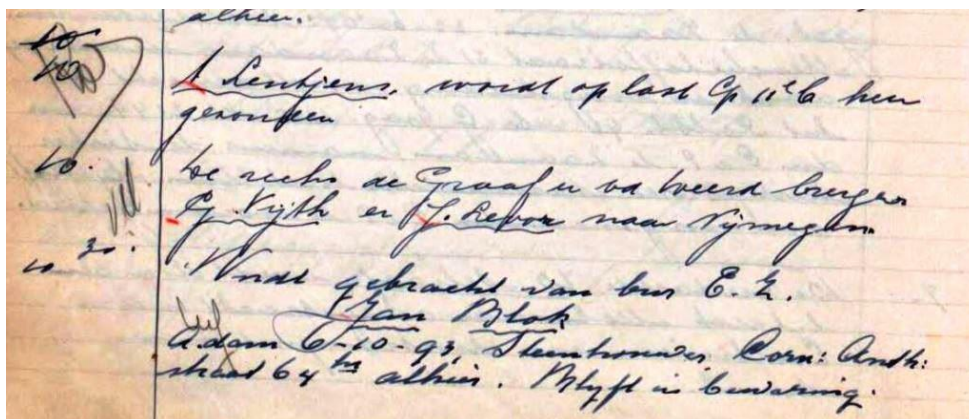 alhier.
10
10 A Lentjens, wordt op last Cp 11e B heen
gezonden
10. De rechs de Graaf en vd Weerd brengen
G. Vijth en J. Levor naar Nijmegen.
10 30. Wordt gebracht van bur E. Z.
Jan Blok
A.dam 6-10-93, Steenhouwer, Corn: Anth:
straat 64 hs alhier. Blijft in bewaring.